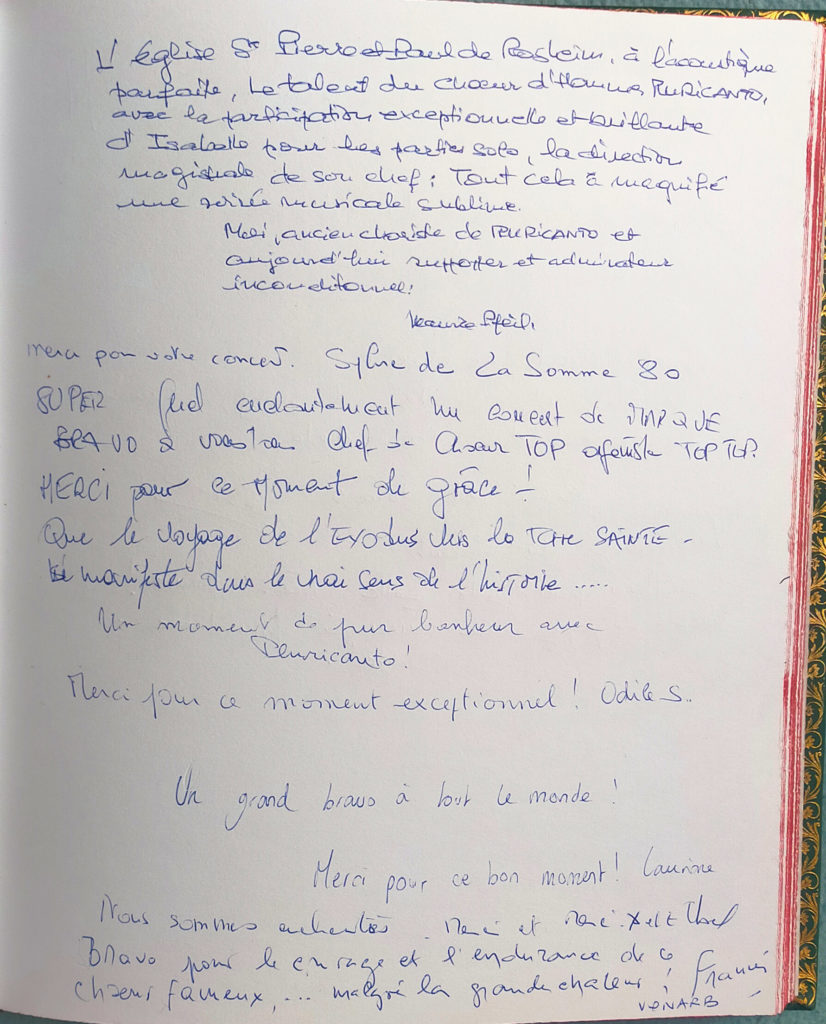 L'église St Pierre et Paul de Rosheim, à l'acoustique
parfaite, Le talent du chœur d'hommes PLURICANTO,
avec la participation exceptionnelle et brillante
d'Isabelle pour les parties solo, la direction
magistrale de son chef : Tout cela à magnifié
une soirée musicale sublime.
Moi, ancien choriste de PLURICANTO et
aujourd'hui supporter et admirateur
inconditionnel!
Merci pour votre concert. Sylvie de La Somme 80
SUPER Quel enchantement Un concert de
BRAVO à vous Chef de Chœur TOP organiste TOP TOP.
MERCI pour ce Moment de grâce !
Que le voyage de l'EXODUS vers la Terre SAINTE -
manifeste dans le vrai sens de l'histoire .....
Un moment de pur bonheur avec
Pluricanto!
Merci pour ce moment exceptionnel ! Odile S..
Un grand bravo à tout le monde !
Merci pour ce bon moment! Laurine
Nous sommes enchantés. et
Bravo pour le courage et l'endurance de ce
chœur fameux, ... malgré la grande chaleur !